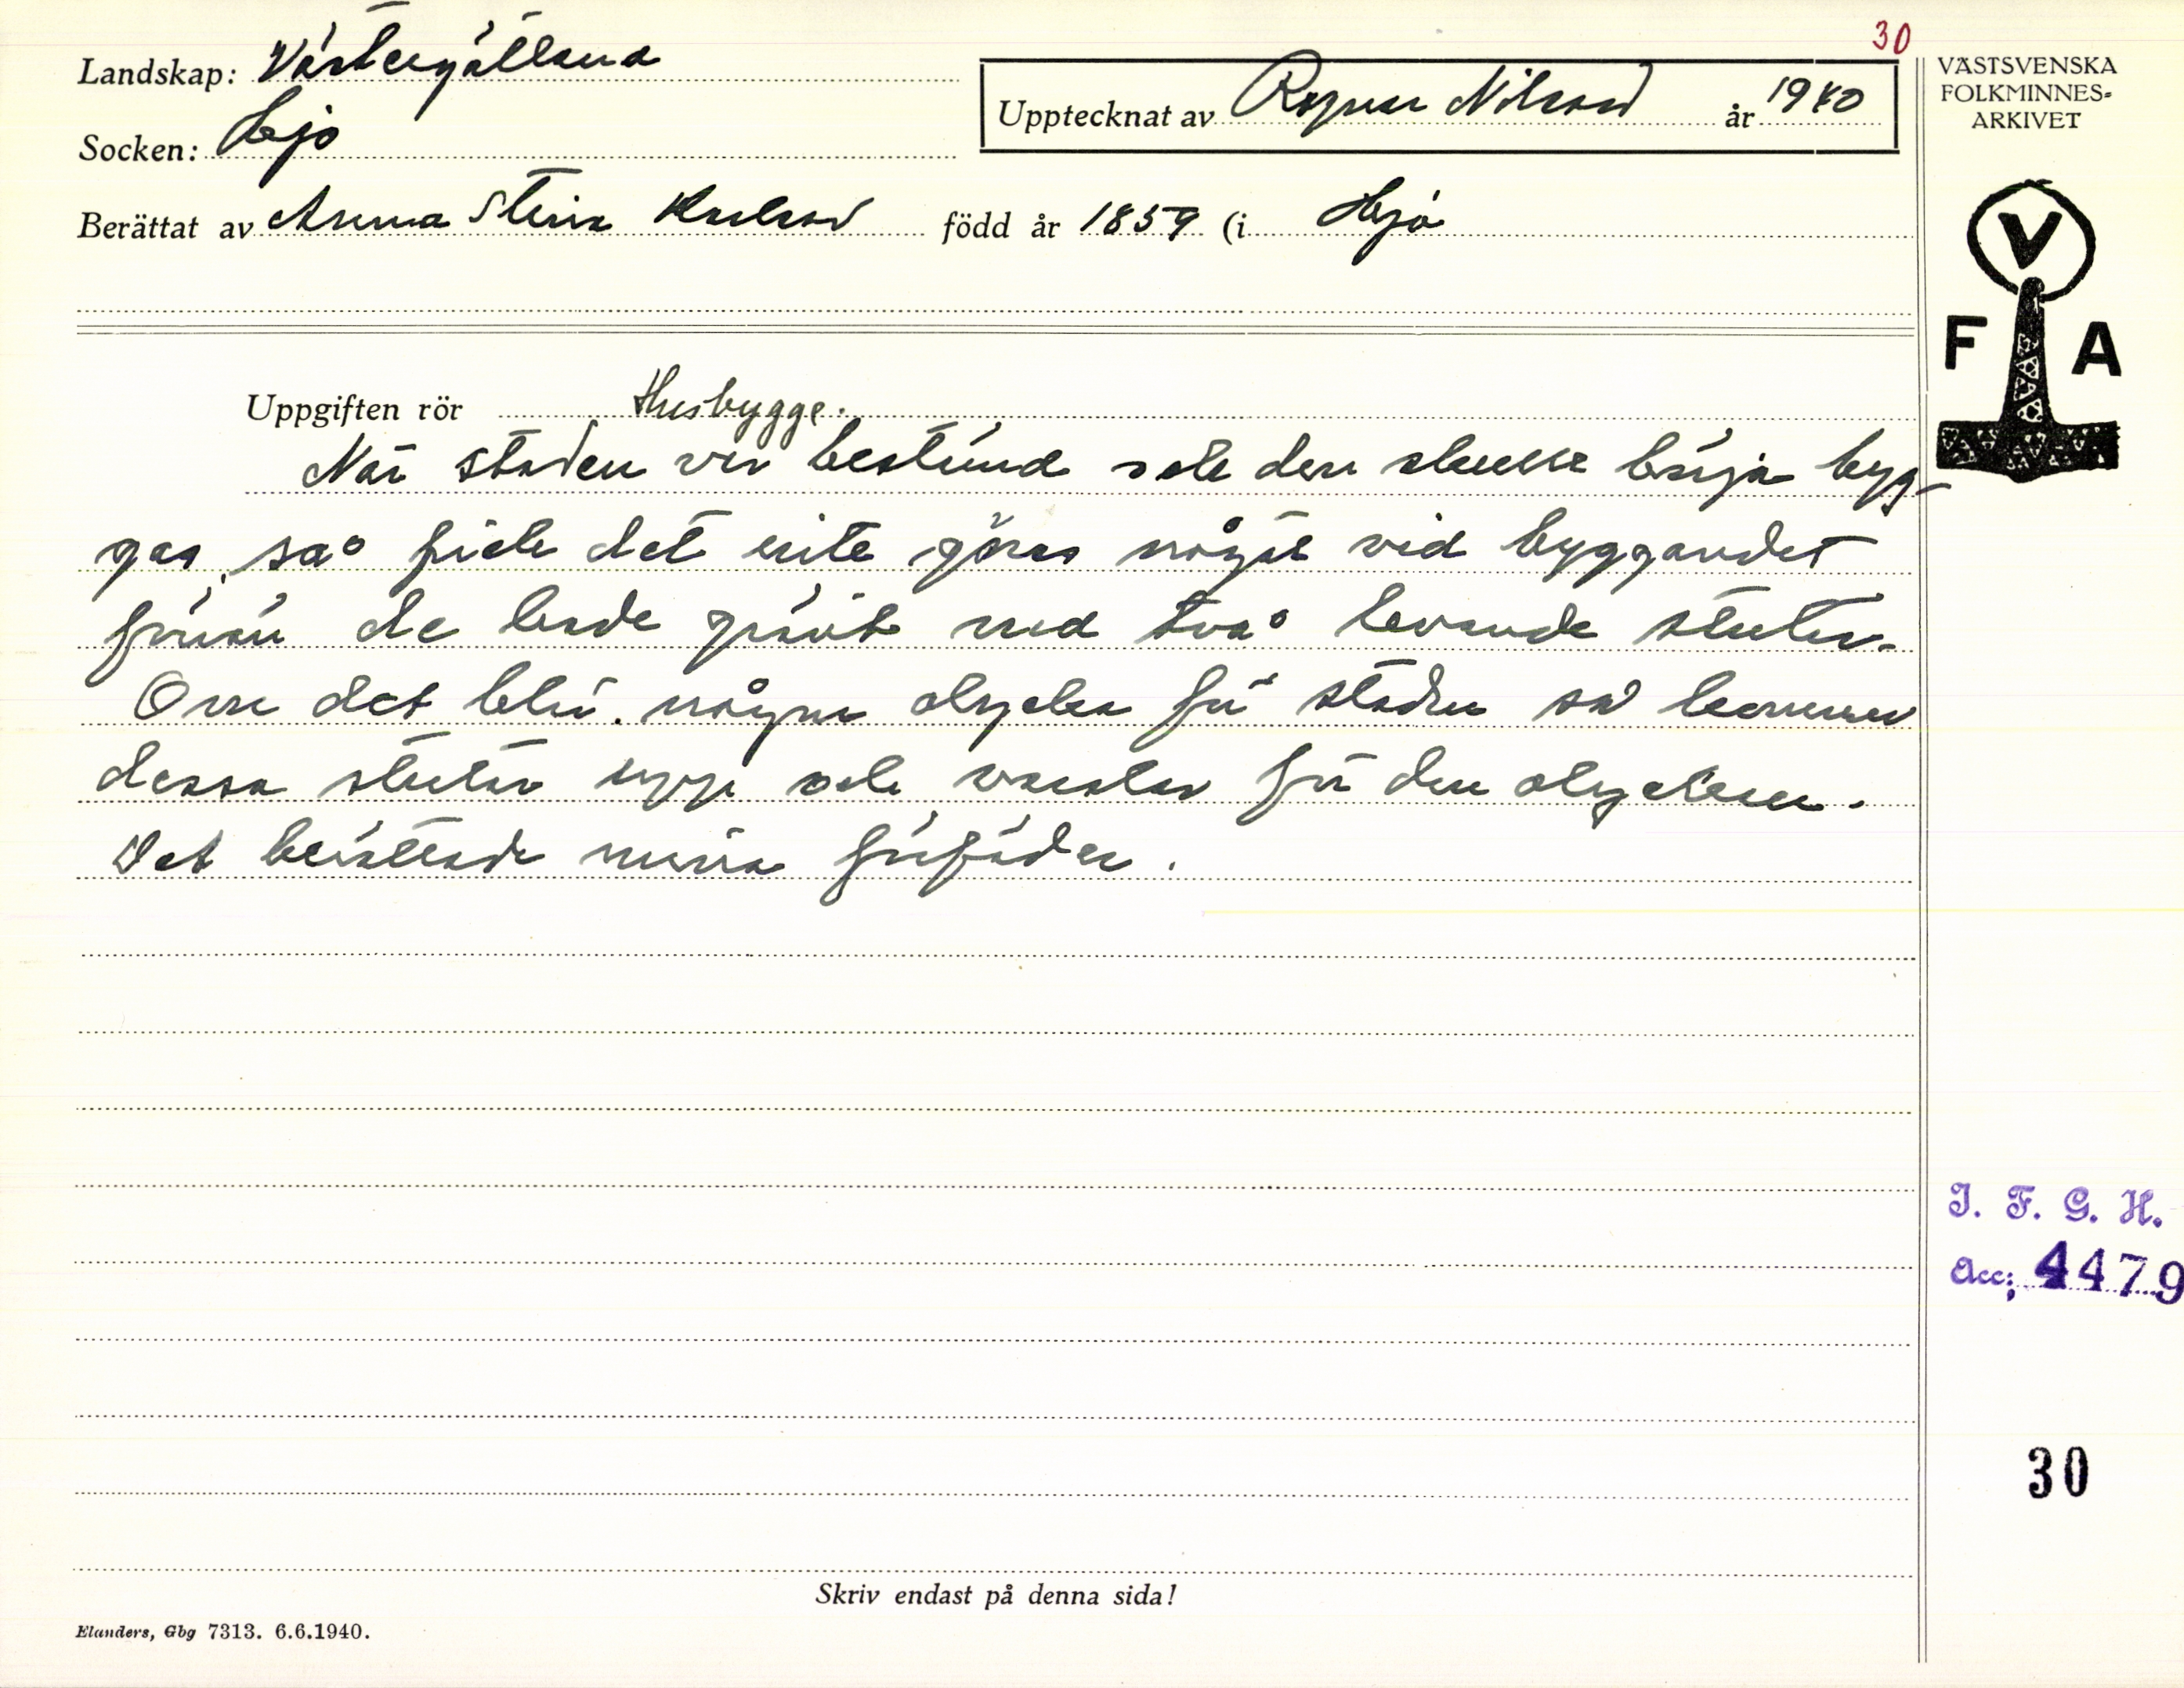 30
Landskap: Västergötland
Upptecknat av Ragnar Nilsson år 1940
VÄSTSVENSKA
FOLKMINNES-
ARKIVET
Socken: Hjo
Berättat av Anna Stina Karlsson född år 1859 (i Hjo
V
F A
Uppgiften rör Husbygge.
När staden var bestämd och den skulle börja byg-
gas, så fick det inte göras något vid byggandet
förrän de hade grävt ned två levande stutar.
Om det blir någon olycka för staden så kommer
dessa stutar upp och varslar för den olyckan.
Det berättade mina förfäder.
I. F. G. H.
Acc; 4479
30
Skriv endast på denna sida!
Elanders, Gbg 7313. 6.6.1940.